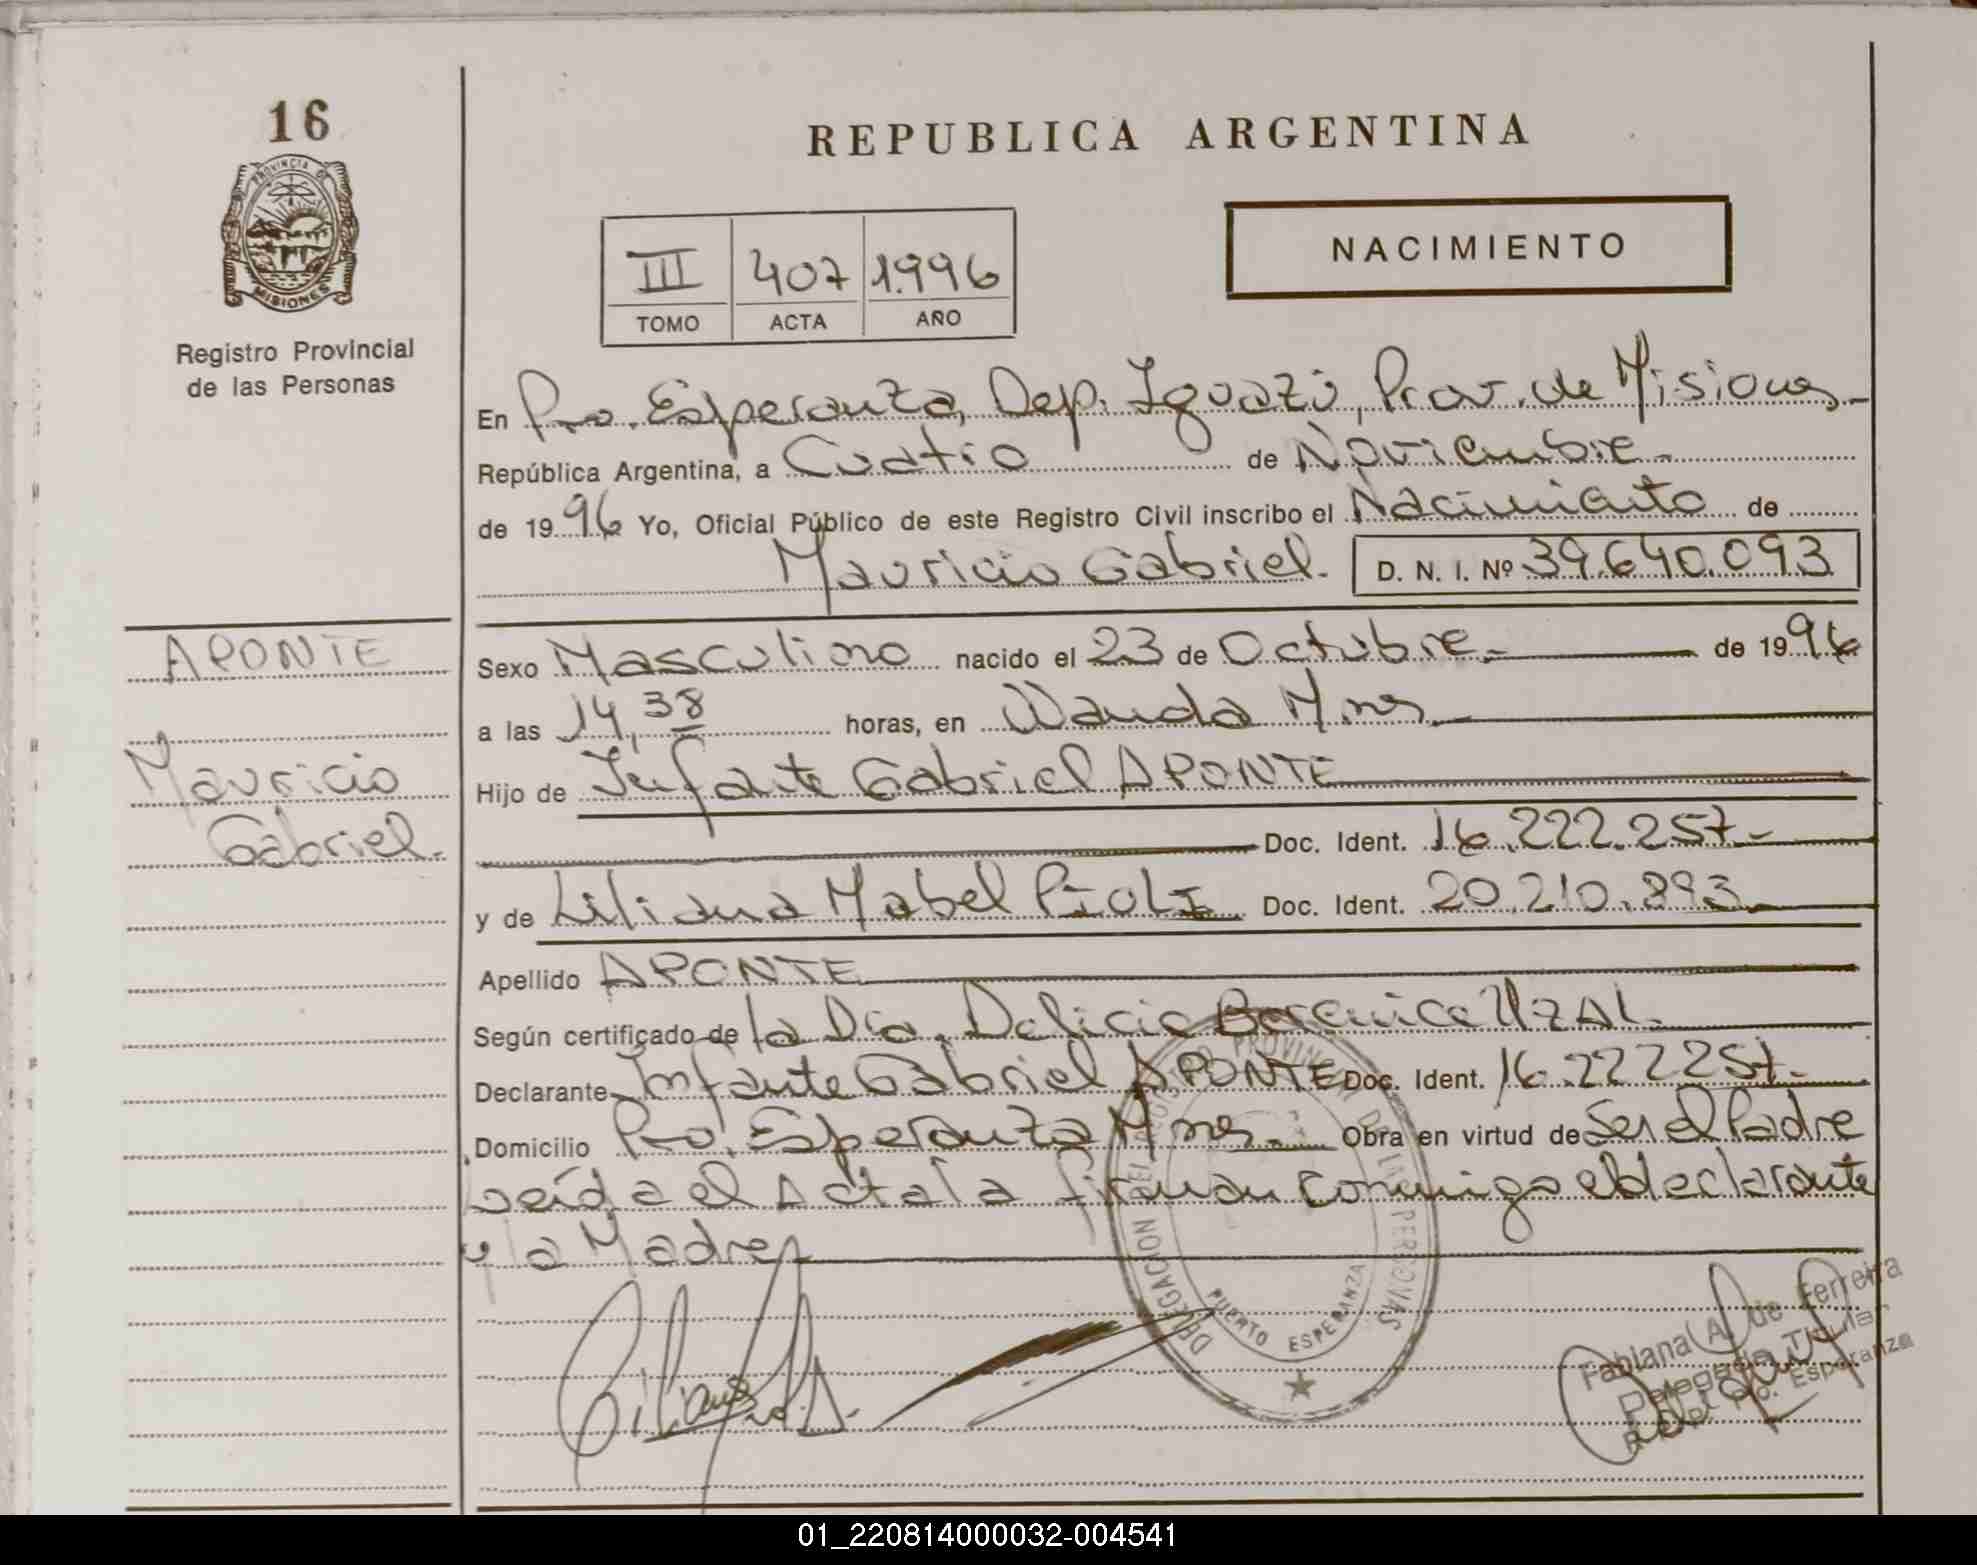 16
PROVINCIA DE
MISIONES
Registro Provincial
de las Personas
REPUBLICA ARGENTINA
NACIMIENTO
III 407 1.996
TOMO ACTA AÑO
En Pto. Esperanza, Dep. Iguazú, Prov. de Misiones
República Argentina, a Cuatro de Noviembre
de 1996 Yo, Oficial Público de este Registro Civil inscribo el Nacimiento de
Mauricio Gabriel. D. N. I. Nº 39.640.093
APONTE
Mauricio
Gabriel.
Sexo Masculino nacido el 23 de Octubre de 1996
a las 14,38 horas, en Wanda Mnes
Hijo de Infante Gabriel APONTE
Doc. Ident. 16.222.257
y de Liliana Mabel Doc. Ident. 20.210.893
Apellido APONTE
Según certificado de la Dra. Delicia Berenice UZAL
Declarante Infante Gabriel APONTE Doc. Ident. 16.222257
Domicilio Pto. Esperanza Mnes. Obra en virtud de Ser el Padre
Leída el Acta la firman conmigo el declarante
y la Madre
DELEGACION DEL REGISTRO PROVINCIAL DE LAS PERSONAS
PUERTO ESPERANZA
Fabiana A. de Ferreira
Delegada Titular
R.P.P. Pto. Esperanza
01_220814000032-004541